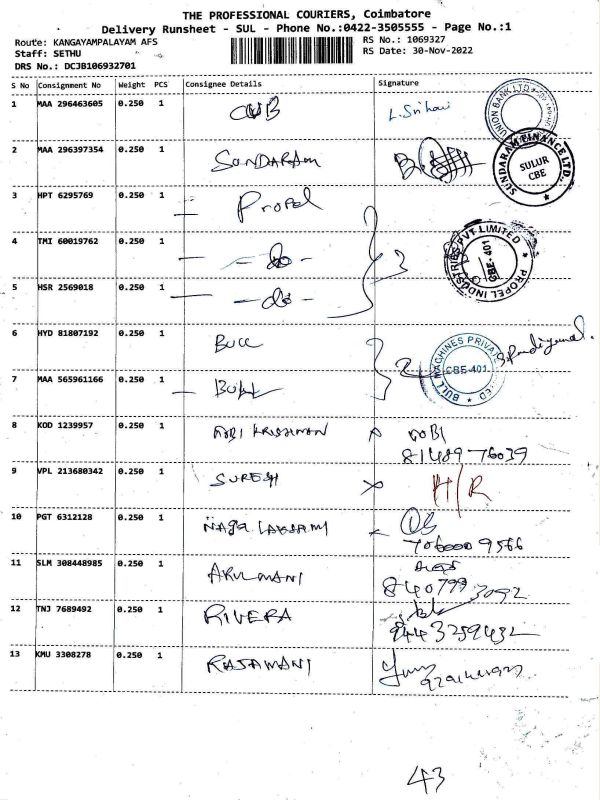 THE PROFESSIONAL COURIERS, Coimbatore
Delivery Runsheet - SUL - Phone No.:0422-3505555 - Page No.:1
Route: KANGAYAMPALAYAM AFS RS No.: 1069327
Staff: SETHU RS Date: 30-Nov-2022
DRS No.: DCJB106932701
S No Consignment No Weight PCS Consignee Details Signature
1 MAA 296463605 0.250 1 CUB L. Srihari
UNION BANK LTD
2 MAA 296397354 0.250 1 SUNDARAM
SUNDARAM FINANCE LTD., SULUR CBE
3 HPT 6295769 0.250 1 — Propel
4 TMI 60019762 0.250 1 — - do - 3
PROPEL INDUSTRIES PVT LIMITED CBE- 401
5 HSR 2569018 0.250 1 — - do -
6 HYD 81807192 0.250 1 Bull 2
BULL MACHINES PRIVATE LIMITED CBE-401
7 MAA 565961166 0.250 1 — BULL
8 KOD 1239957 0.250 1 GOBI KRISHNAN x GOBI
81489 76039
9 VPL 213680342 0.250 1 SURESH x H/R
10 PGT 6312128 0.250 1 NAGA LAKSHMI
706000 9566
11 SLM 308448985 0.250 1 ARULMANI
840799 3092
12 TNJ 7689492 0.250 1 RIVERA
9443259432
13 KMU 3308278 0.250 1 RAJAMANI
43